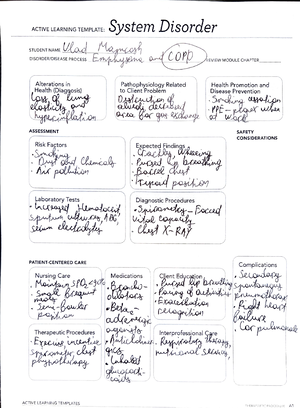 ACTIVE LEARNING TEMPLATE: System Disorder
STUDENT NAME Vlad
DISORDER/DISEASE PROCESS Emphysema and COPD REVIEW MODULE CHAPTER
Alterations in
Health (Diagnosis)
Loss of lung
elasticity and
hyperinflation
Pathophysiology Related
to Client Problem
Destruction of
alveoli, decreased
area for gas exchange
Health Promotion and
Disease Prevention
• Smoking cessation
• PPE - mask when
at work
ASSESSMENT
SAFETY
CONSIDERATIONS
Risk Factors
• Smoking
• Dust and chemicals
• Air pollution
Expected Findings
• Crackles, wheezing
• Pursed lip breathing
• Barrel chest
• Tripod position
Laboratory Tests
• Increased Hematocrit,
sputum cultures, ABG,
serum electrolytes
Diagnostic Procedures
• Spirometry - Forced
vital capacity
• Chest X-RAY
PATIENT-CENTERED CARE
Nursing Care
• Maintain SPO2
• Small frequent
meals
• Semi-Fowler
position
Medications
• Broncho-
dilators
• Beta-
adrenergic
agonists
• Anticholiner-
gics
• Inhaled
glucocorti-
Client Education
• Pursed lip breathing
• Pacing of activities
• Exacerbation
recognition
Complications
• Secondary
spontaneous
pneumothorax
• Right heart
failure
• Cor pulmonale
Therapeutic Procedures
• Exercise, incentive
spirometer, chest
physiotherapy
Interprofessional Care
• Respiratory therapy,
nutritional services
ACTIVE LEARNING TEMPLATES